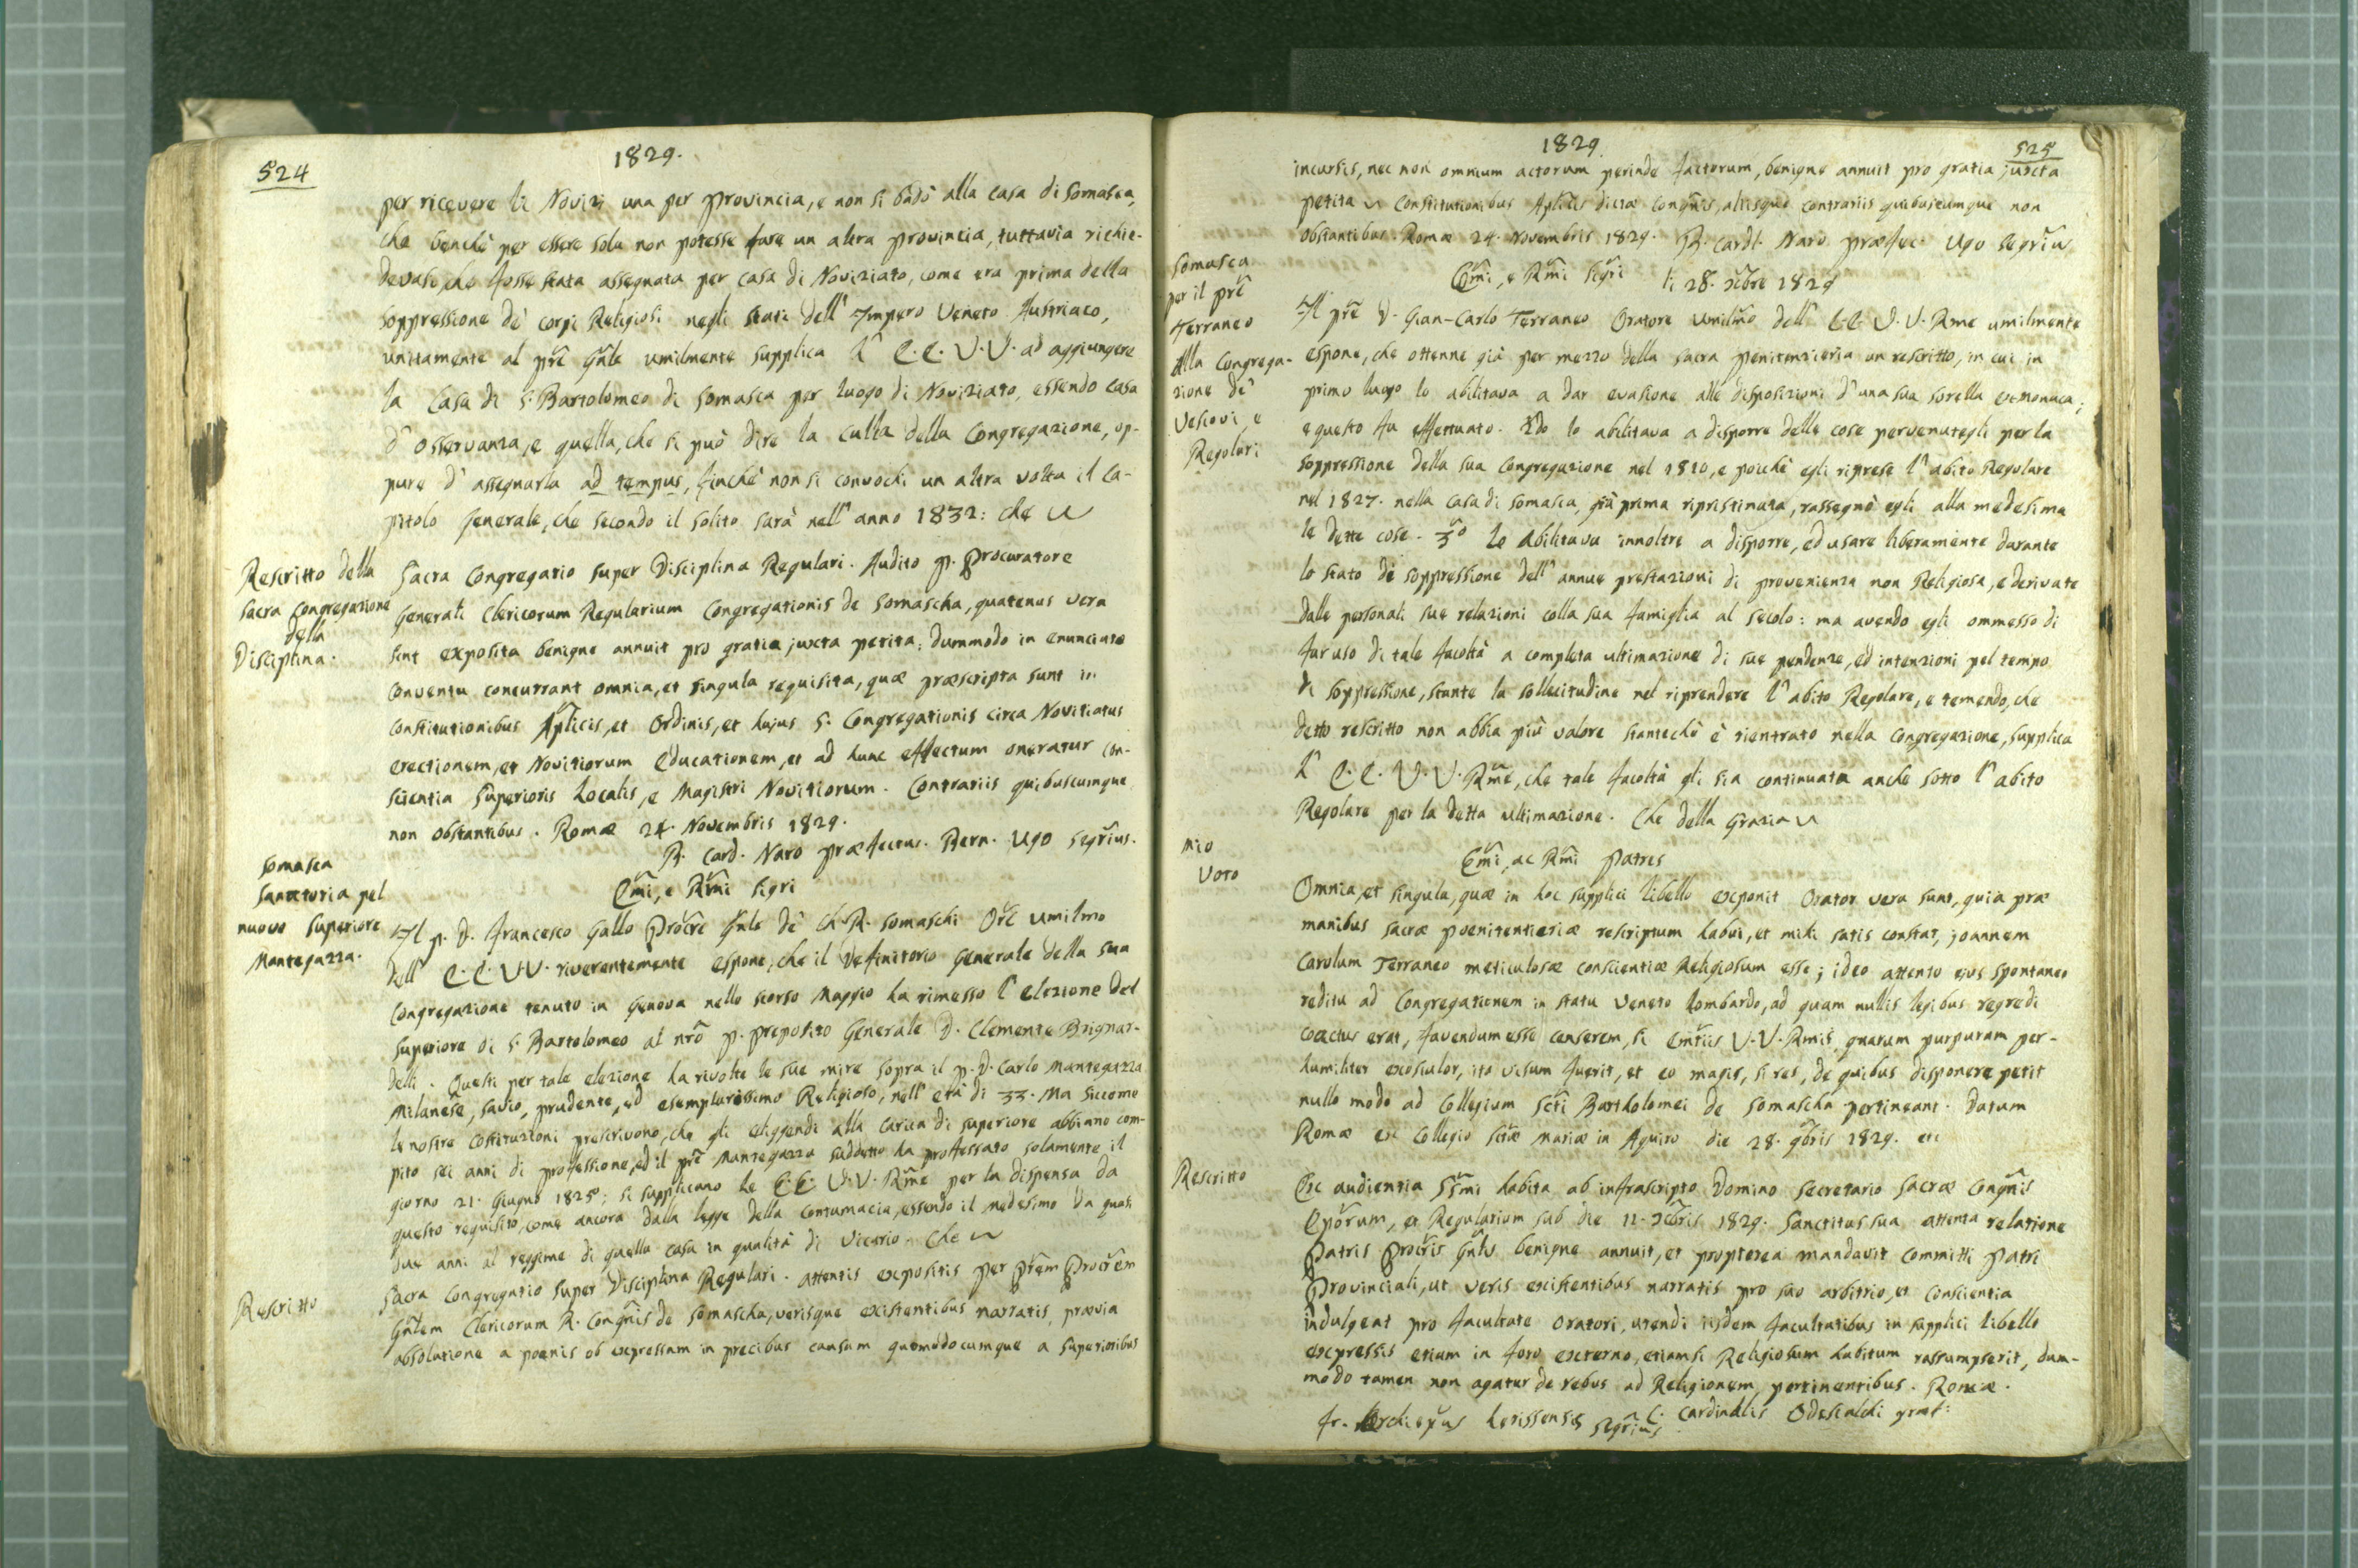 524
1829.
per ricevere li Novizi una per provincia, e non si badò alla casa di Somasca,
che benchè per essere sola non potesse fare un altra provincia, tuttavia richie-
devasi, che fosse stata assegnata per casa di Noviziato, come era prima della
soppressione de' corpi Religiosi negli stati dell' Impero Veneto Austriaco,
unitamente al pre Gnle umilmente supplica l' E.E. V.V. ad aggiungere
la Casa di S. Bartolomeo di Somasca per luogo di Noviziato, essendo casa
d' osservanza, e quella, che si può dire la culla della Congregazione, op-
pure d' assegnarla ad tempus, finchè non si convochi un altra volta il Ca-
pitolo Generale, che secondo il solito sarà nell' anno 1832: che
Rescritto della
Sacra Congregazione
della
Disciplina.
Sacra Congregatio super Disciplina Regulari. Audito p. Procuratore
Generali Clericorum Regularium Congregationis de Somascha, quatenus vera
sint exposita benigne annuit pro gratia juxta petita; dummodo in enunciato
Conventu concurrant omnia, et singula requisita, quæ præscripta sunt in
Constitutionibus Aplicis, et Ordinis, et hujus S. Congregationis circa Novitiatus
erectionem, et Novitiorum Educationem, et ad hunc effectum oneratur con-
scientia Superioris Localis, e Magistri Novitiorum. Contrariis quibuscumque
non obstantibus. Romæ 24. Novembris 1829.
B. Card. Naro præfectus. Bern. Ugo Segrius.
Somasca
Sanatoria pel
nuovo Superiore
Mantegazza.
Emi, e Rmi Sigri
Il p. D. Francesco Gallo Procre Gnle de' Ch. R. Somaschi Ore umilmo
dell' E.E. V.V. riverentemente espone, che il Definitorio Generale della sua
Congregazione tenuto in Genova nello scorso Maggio ha rimesso l' elezione del
Superiore di S. Bartolomeo al nro P. Preposito Generale D. Clemente Brignar-
delli. Questi per tale elezione ha rivolte le sue mire sopra il p. D. Carlo Mantegazza
Milanese, savio, prudente, ed esemplarissimo Religioso, nell' età di 33. Ma siccome
le nostre Costituzioni prescrivono, che gli eliggendi alla carica di superiore abbiano com-
pito sei anni di professione, ed il pre Mantegazza suddetto ha professato solamente il
giorno 21. Giugno 1825; si supplicano le E.E. V.V. Rme per la dispensa da
questo requisito, come ancora dalla legge della contumacia, essendo il medesimo da quasi
due anni al reggime di quella casa in qualità di vicario. Che
Rescritto
Sacra Congregatio super Disciplina Regulari. attentis expositis per Prem Procrem
Gnlem Clericorum R. Congnis de Somascha, verisque existentibus narratis, prævia
absolutione a poenis ob expressam in precibus causam quomodocumque a Superioribus
1829.
525
incursis, nec non omnium actorum perinde factorum, benigne annuit pro gratia juxta
petita Constitutionibus Aplicis dictæ Congnis, aliisque contrariis quibuscumque non
obstantibus. Romæ 24. Novembris 1829. B. Cardl. Naro præfec. Ugo Segriu
Somasca
per il pre
Terraneo
alla Congrega-
zione de'
Vescovi, e
Regolari
Emi, e Rmi Sigri li 28. xbre 1829
Il pre D. Gian-Carlo Terraneo Oratore umilmo dell' E.E. V.V. Rme umilmente
espone, che ottenne già per mezzo della sacra penitenzieria un rescritto, in cui in
primo luogo lo abilitava a dar evasione alle disposizioni d' una sua sorella exmonaca;
e questo fu effettuato. 2do lo abilitava a disporre delle cose pervenutegli per la
soppressione della sua Congregazione nel 1810, e poichè egli riprese l' abito Regolare
nel 1827. nella casa di Somasca, già prima ripristinata, rassegnò egli alla medesima
le dette cose. 3o Lo abilitava innoltre a disporre, ed usare liberamente durante
lo stato di soppressione dell' annue prestazioni di provenienza non Religiosa, e derivate
dalle personali sue relazioni colla sua famiglia al secolo: ma avendo egli ommesso di
far uso di tale facoltà a completa ultimazione di sue pendenze, ed intenzioni pel tempo
di soppressione, stante la sollecitudine nel riprendere l' abito Regolare, e temendo, che
detto rescritto non abbia più valore stantechè è rientrato nella Congregazione, supplica
l' E.E. V.V. Rme, che tale facoltà gli sia continuata anche sotto l' abito
Regolare per la detta ultimazione. Che della Grazia
Mio
Voto
Emi, ac Rmi Patres
Omnia, et singula, quæ in hoc supplici libello exponit Orator vera sunt, quia præ
manibus sacræ poenitentieriæ rescriptum habui, et mihi satis constat, joannem
Carolum Terraneo meticulosæ conscientiæ Religiosum esse; ideo attento ejus spontaneo
reditu ad Congregationem in statu Veneto Lombardo, ad quam nullis legibus regredi
coactus erat, favendum esse censerem, si Emtiis V.V. Rmis, quarum purpuram per-
humiliter exosculor, ita visum fuerit, et eo magis, si res, de quibus disponere petit
nullo modo ad Collegium Scti Bartholomei de Somascha pertineant. Datum
Romæ ex Collegio Sctæ Mariæ in Aquiro die 28. 9bris 1829. etc
Rescritto
Ex audientia SSmi habita ab infrascripto Domino Secretario Sacræ Congnis
Eporum, et Regularium sub die 11. Xbris 1829. Sanctitas sua attenta relatione
Patris Procris Gnlis benigne annuit, et propterea mandavit committi Patri
Provinciali, ut veris existentibus narratis pro suo arbitrio, et conscientia
indulgeat pro facultate Oratori, utendi iisdem facultatibus in supplici libello
expressis etiam in foro externo, etiamsi Religiosum habitum rassumpserit, dum-
modo tamen non agatur de rebus ad Religionem pertinentibus. Romæ.
C. Cardinalis Odescalchi præf: